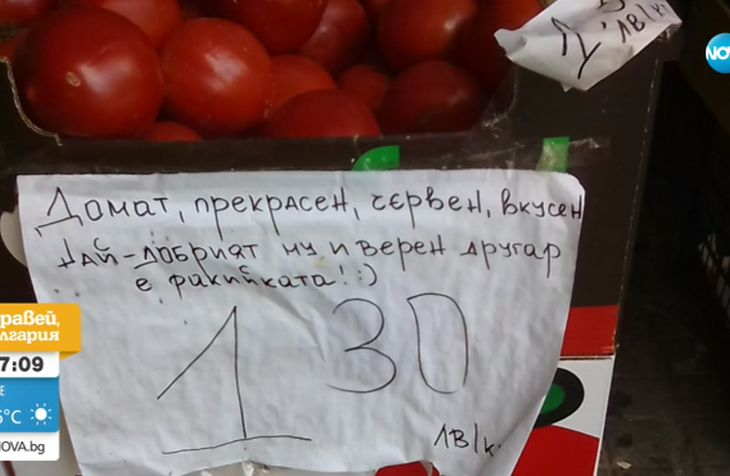 ЛВ/К.
NOVA
Домат, прекрасен, червен, вкусен
Най-добрият му и верен другар
е ракийката! :)
1 30
лв/к.
равей,
лгария
7:09
5°C
NOVA.bg